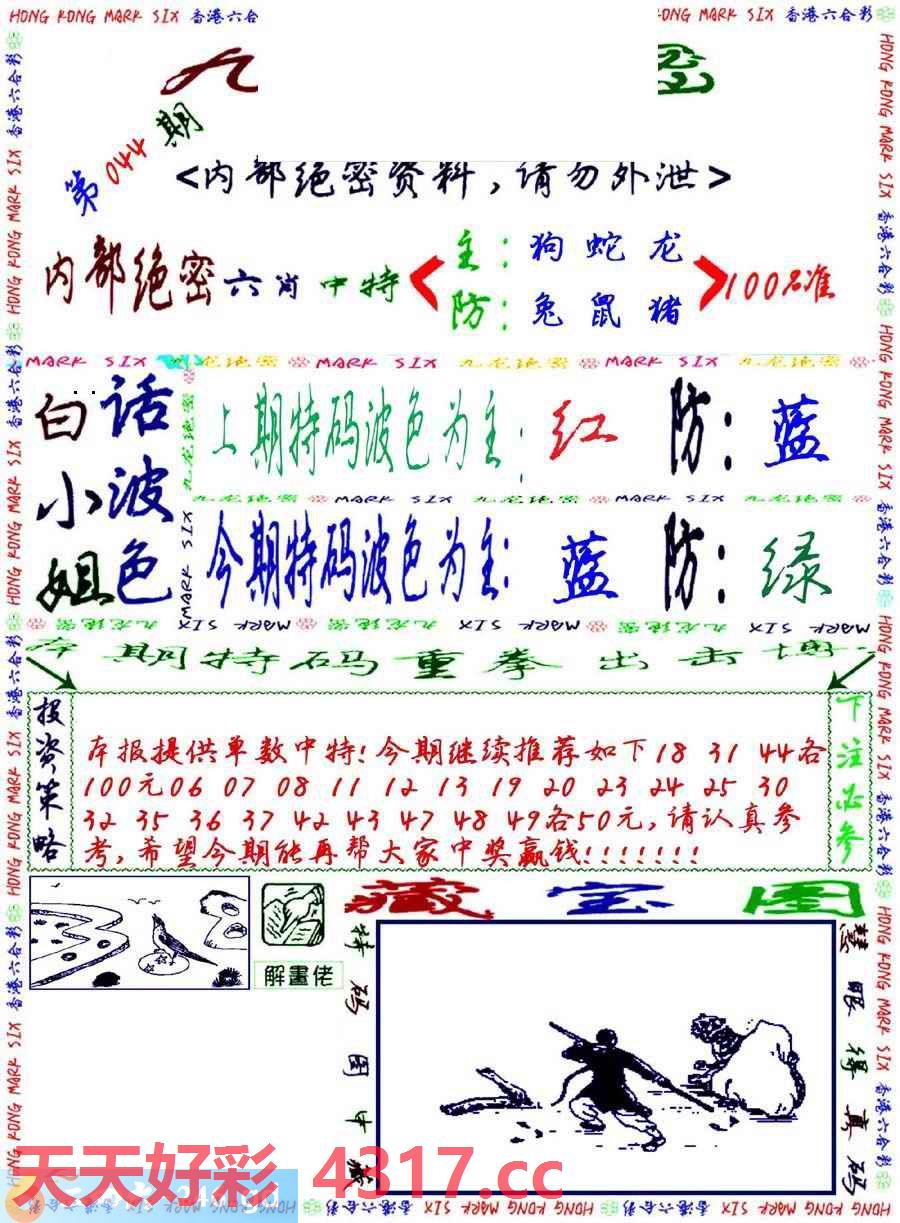 HONG KONG MARK SIX 香港六合
KONG MARK SIX 香港六合彩
九
第044期
<内部绝密资料，请勿外泄>
内部绝密六肖中特
主：狗 蛇 龙
防：兔 鼠 猪
100%准
MARK SIX 九龙绝密 MARK SIX 九龙绝密 MARK SIX 九龙绝密
白话
小波
姐色
上期特码波色为主：红 防：蓝
九龙绝密 MARK SIX 九龙绝密 MARK SIX 九龙绝密
今期特码波色为主：蓝 防：绿
MARK SIX 九龙绝密 MARK SIX 九龙绝密 MARK SIX 九龙绝密
本期特码重拳出击
投资策略
本报提供单数中特!今期继续推荐如下18 31 44各
100元06 07 08 11 12 13 19 20 23 24 25 30
32 35 36 37 42 43 47 48 49各50元,请认真参
考,希望今期能再帮大家中奖赢钱!!!!!!!
下注必参
解畫佬
藏宝图
特码图中藏
慧眼得真码
天天好彩 4317.cc
HONG KONG MARK SIX 香港六合彩